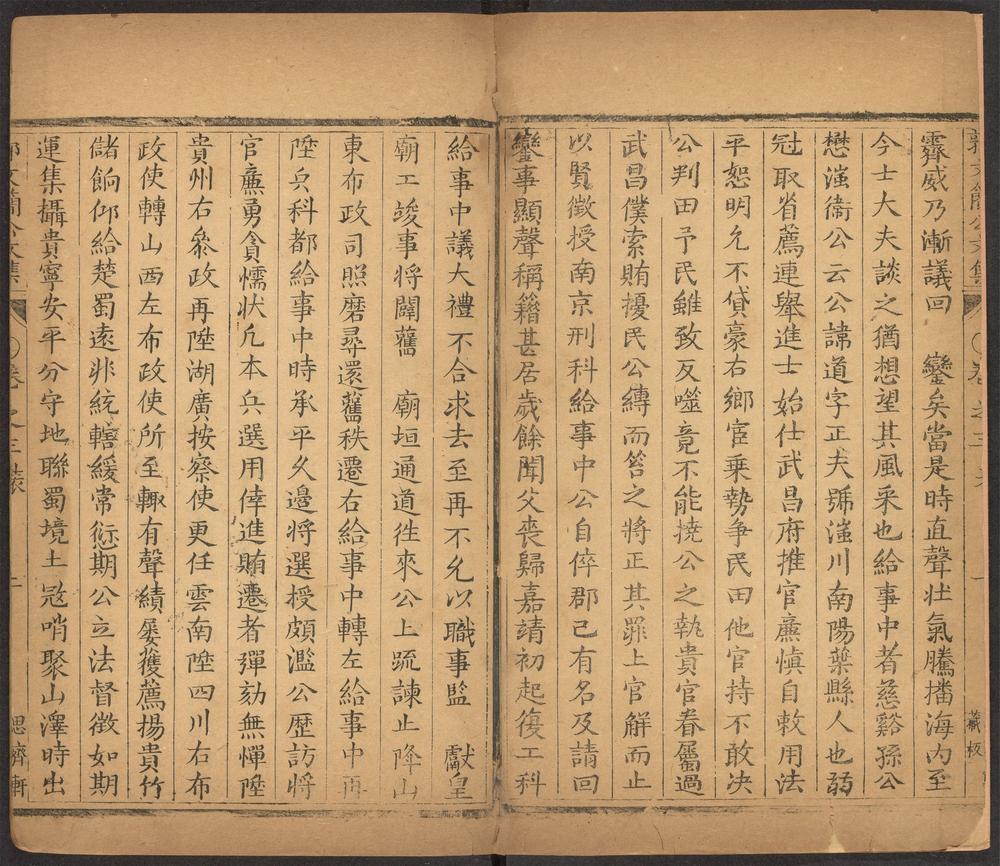 郭文簡公文集 卷之三 藏板
霽威乃漸議回　鑾矣當是時直聲壯氣騰播海內至
今士大夫談之猶想望其風采也給事中者慈谿孫公
懋滍衞公云公諱道字正夫號滍川南陽葉縣人也弱
冠取省薦連舉進士始仕武昌府推官廉慎自敕用法
平恕明允不貸豪右鄉宦乗勢爭民田他官持不敢决
公判田予民雖致反噬竟不能撓公之執貴官眷屬過
武昌僕索賄擾民公縛而笞之將正其罪上官解而止
以賢徴授南京刑科給事中公自倅郡已有名及請回
鑾事顯聲稱籍甚居歲餘聞父丧歸嘉靖初起復工科
給事中議大禮不合求去至再不允以職事監　獻皇
廟工竣事將闢舊　廟垣通道徃來公上疏諫止降山
東布政司照磨尋還舊秩遷右給事中轉左給事中再
陞兵科都給事中時承平久邊將選授頗濫公歷訪將
官廉勇貪懦狀凢本兵選用倖進賄遷者彈劾無憚陞
貴州右叅政再陞湖廣按察使更任雲南陞四川右布
政使轉山西左布政使所至輙有聲績屡獲薦揚貴竹
儲餉仰給楚蜀逺非統轄緩常愆期公立法督徴如期
運集攝貴寧安平分守地聯蜀境土冦哨聚山澤時出
郭文簡公文集 卷之三 思齊軒